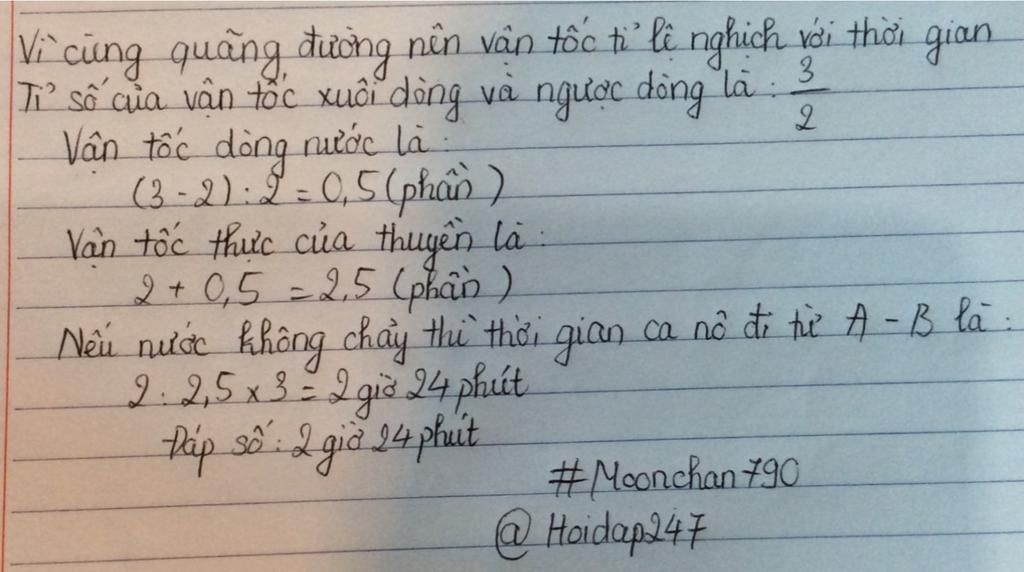 Vì cùng quãng đường nên vận tốc tỉ lệ nghịch với thời gian
Tỉ số của vận tốc xuôi dòng và ngược dòng là : 3/2
Vận tốc dòng nước là :
(3 - 2) : 2 = 0,5 (phần)
Vận tốc thực của thuyền là :
2 + 0,5 = 2,5 (phần)
Nếu nước không chảy thì thời gian ca nô đi từ A - B là :
2 : 2,5 x 3 = 2 giờ 24 phút
Đáp số : 2 giờ 24 phút
#Moonchan790
@Hoidap247